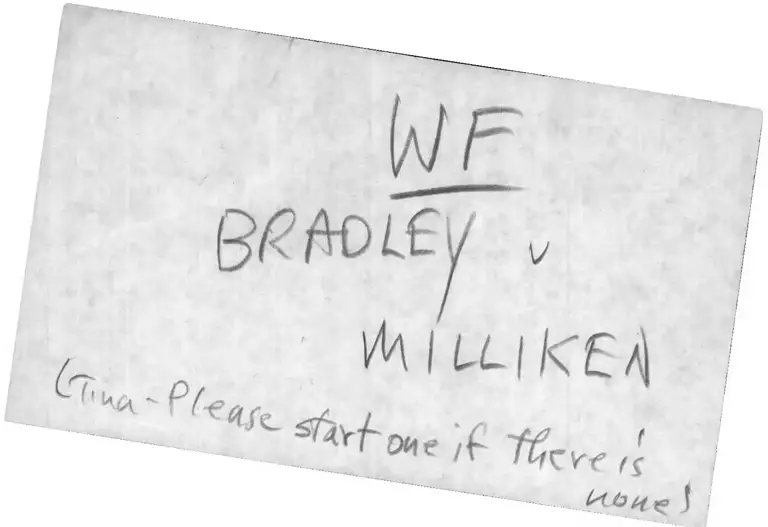 WF
BRADLEY v
MILLIKEN
(Gina - Please start one if there is
none)